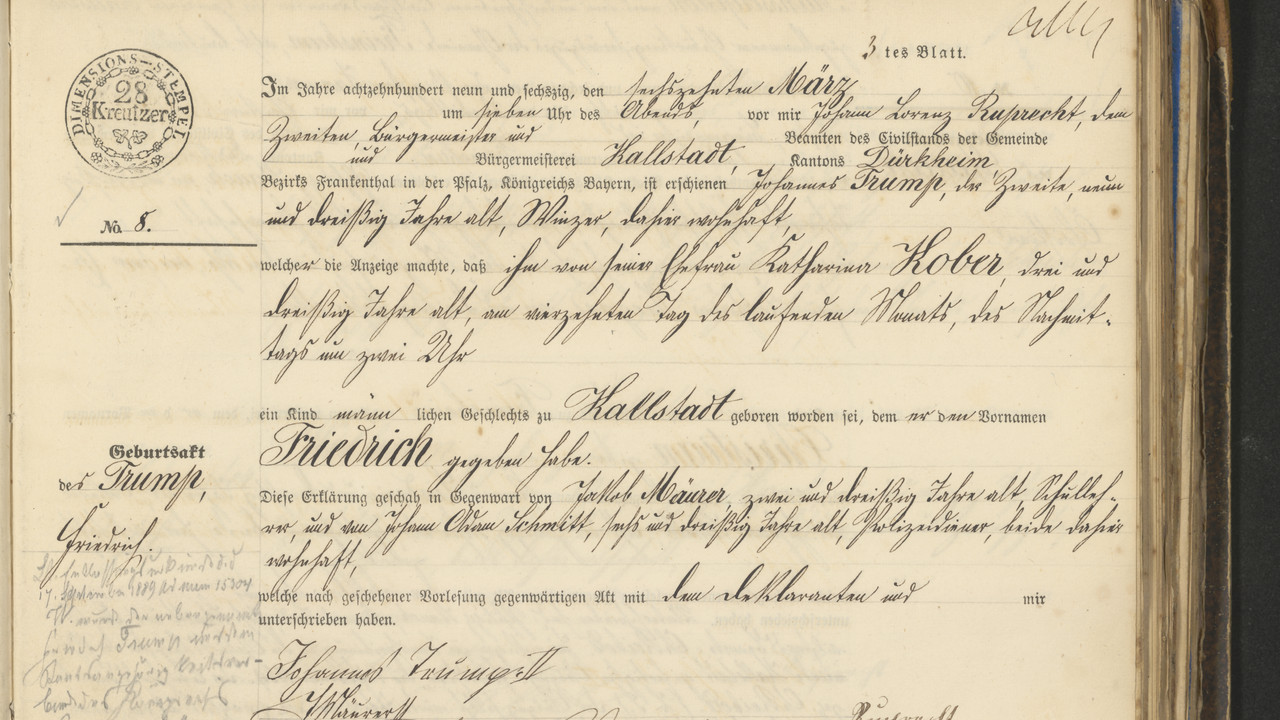 3 tes Blatt.
DIMENSIONS-STEMPEL
28
Kreutzer
Im Jahre achtzehnhundert neun und sechszig, den sechszehnten März
um sieben Uhr des Abends, vor mir Johann Lorenz Ruprecht, dem
Zweiten, Bürgermeister und Beamten des Civilstands der Gemeinde
und Bürgermeisterei Kallstadt, Kantons Dürkheim
Bezirks Frankenthal in der Pfalz, Königreichs Bayern, ist erschienen Johannes Trump, der Zweite, neun
und dreißig Jahre alt, Winzer, dahier wohnhaft,
No. 8.
welcher die Anzeige machte, daß ihm von seiner Ehefrau Katharina Kober, drei und
dreißig Jahre alt, am vierzehnten Tag des laufenden Monats, des Nachmit-
tags um zwei Uhr
ein Kind männ lichen Geschlechts zu Kallstadt geboren worden sei, dem er den Vornamen
Friedrich gegeben habe.
Geburtsakt
des Trump,
Friedrich.
Diese Erklärung geschah in Gegenwart von Jakob Mäurer, zwei und dreißig Jahre alt, Schulleh-
rer, und von Johann Adam Schmitt, sechs und dreißig Jahre alt, Polizeidiener, beide dahier
wohnhaft,
welche nach geschehener Vorlesung gegenwärtigen Akt mit dem Deklaranten und mir
unterschrieben haben.
Johannes Trump II
Mäurer
Ruprecht